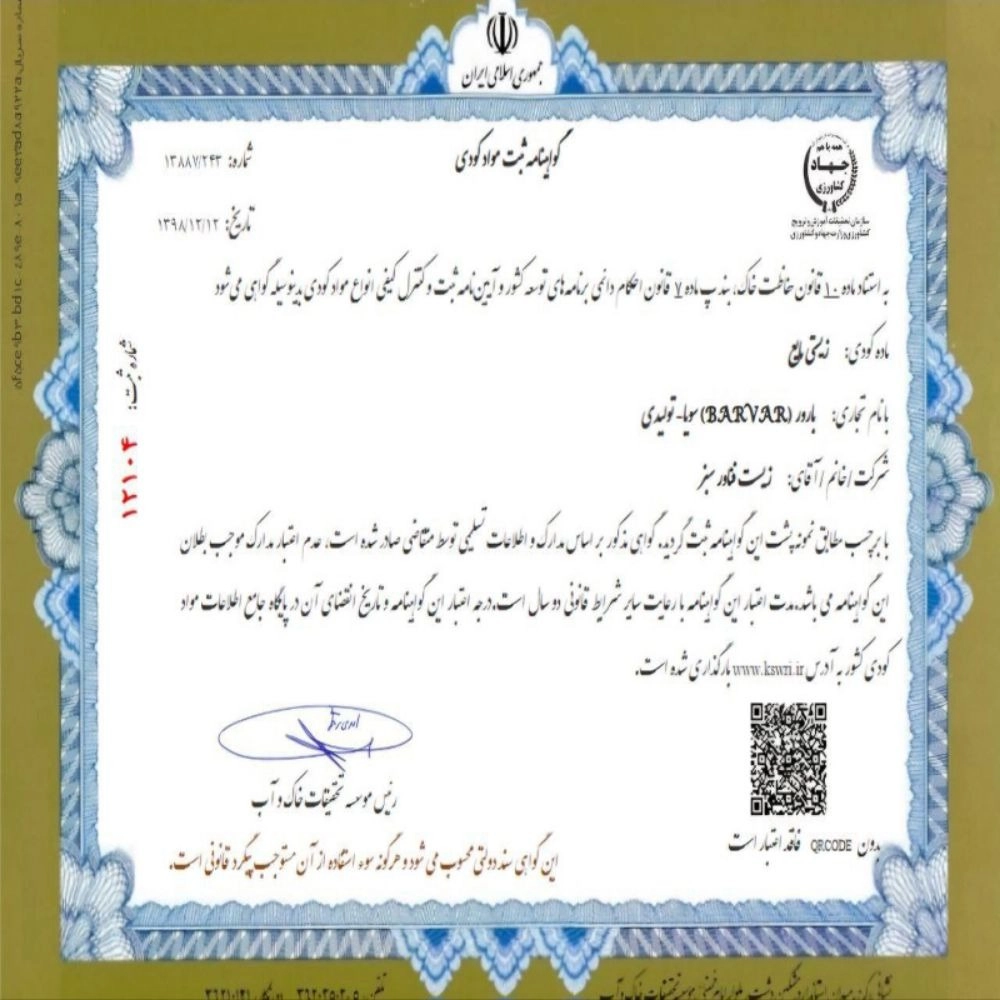 جمهوری اسلامی ایران
همه با هم
جهاد
کشاورزی
سازمان تحقیقات آموزش و ترویج
کشاورزی وزارت جهاد کشاورزی
گواهینامه ثبت مواد کودی
شماره: ۱۳۸۸۷/۲۴۳
تاریخ: ۱۳۹۸/۱۲/۱۲
به استناد ماده ۱۰ قانون حفاظت خاک، بند پ ماده ۷ قانون احکام دائمی برنامه های توسعه کشور و آیین نامه ثبت و کنترل کیفی انواع مواد کودی بدینوسیله گواهی می شود
ماده کودی: زیستی مایع
با نام تجاری: بارور (BARVAR) سویا- تولیدی
شرکت / خانم / آقای: زیست فناور سبز
شماره ثبت:
۱۲۱۰۴
با برچسب مطابق نمونه پشت این گواهینامه ثبت گردید. گواهی مذکور بر اساس مدارک و اطلاعات تسلیمی توسط متقاضی صادر شده است، عدم اعتبار مدارک موجب بطلان
این گواهینامه می باشد. مدت اعتبار این گواهینامه با رعایت سایر شرایط قانونی دو سال است. درجه اعتبار این گواهینامه و تاریخ انقضای آن در پایگاه جامع اطلاعات مواد
کودی کشور به آدرس www.kswri.ir بارگذاری شده است.
رئیس موسسه تحقیقات خاک و آب
بدون QR.CODE فاقد اعتبار است
این گواهی سند دولتی محسوب می شود و هرگونه سوء استفاده از آن مستوجب پیگرد قانونی است.